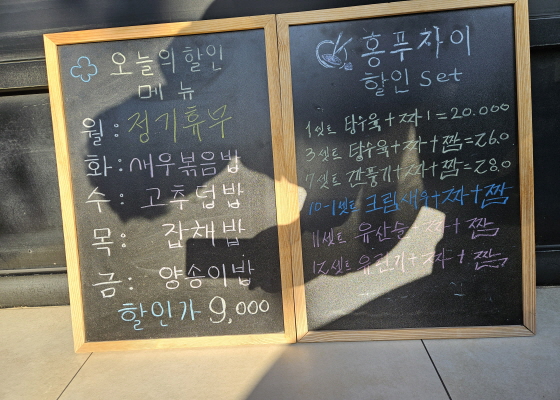 오늘의 할인
메뉴
월: 정기휴무
화: 새우볶음밥
수: 고추덮밥
목: 잡채밥
금: 양송이밥
할인가 9,000
홍푸차이
할인 set
1셋트 탕수육+짜1=20.000
3셋트 탕수육+짜+짬=26.0
7셋트 깐풍기+짜+짬=28.0
10-1셋트 크림새우+짜+짬
11셋트 유산슬+짜+짬
12셋트 유린기+짜+짬